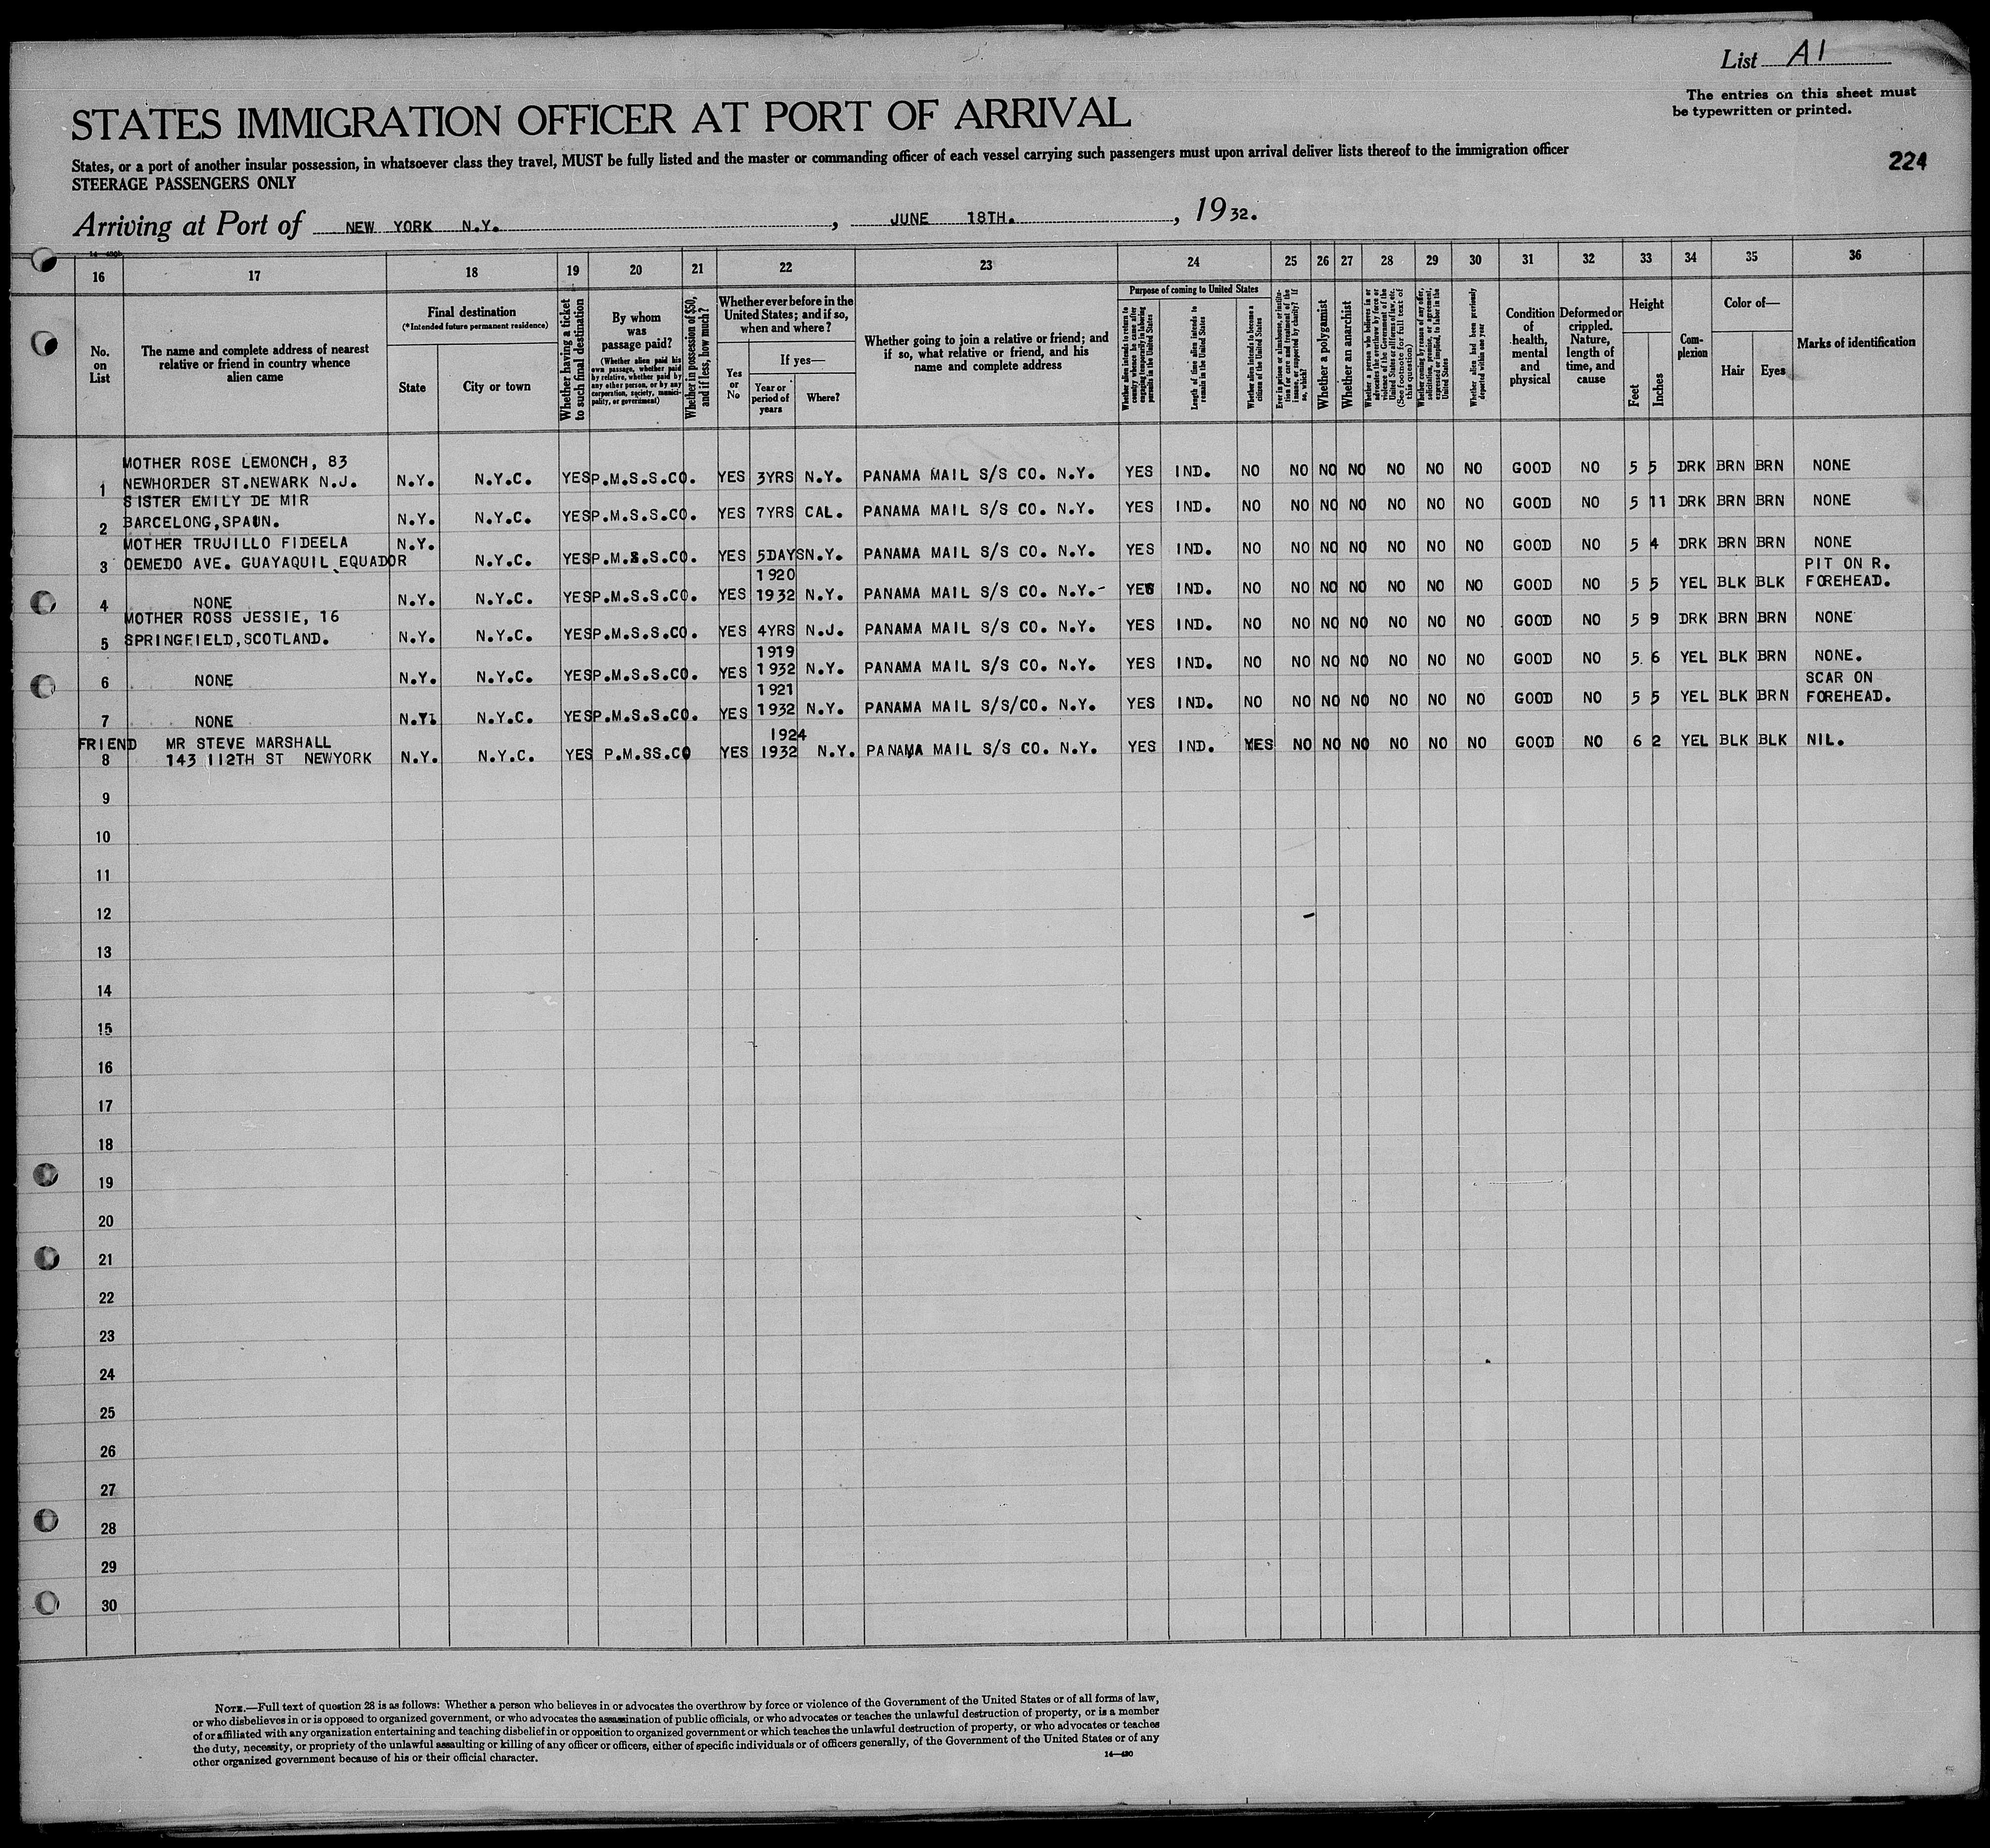 List A1
The entries on this sheet must
be typewritten or printed.
STATES IMMIGRATION OFFICER AT PORT OF ARRIVAL
States, or a port of another insular possession, in whatsoever class they travel, MUST be fully listed and the master or commanding officer of each vessel carrying such passengers must upon arrival deliver lists thereof to the immigration officer
STEERAGE PASSENGERS ONLY
224
Arriving at Port of NEW YORK N.Y., JUNE 18TH., 1932.
16 17 18 19 20 21 22 23 24 25 26 27 28 29 30 31 32 33 34 35 36
No. on List
The name and complete address of nearest relative or friend in country whence alien came
Final destination
(*Intended future permanent residence)
State
City or town
Whether having a ticket to such final destination
By whom was passage paid?
(Whether alien paid his own passage, whether paid by relative, whether paid by any other person, or by any corporation, society, municipality, or government)
Whether in possession of $50, and if less, how much?
Whether ever before in the United States; and if so, when and where?
Yes or No
If yes—
Year or period of years
Where?
Whether going to join a relative or friend; and if so, what relative or friend, and his name and complete address
Purpose of coming to United States
Whether alien intends to return to country whence he came after engaging temporarily in laboring pursuits in the United States
Length of time alien intends to remain in the United States
Whether alien intends to become a citizen of the United States
Ever in prison or almshouse, or institution for care and treatment of the insane, or supported by charity? If so, which?
Whether a polygamist
Whether an anarchist
Whether a person who believes in or advocates the overthrow by force or violence of the Government of the United States or all forms of law, etc. (See footnote for full text of this question)
Whether coming by reason of any offer, solicitation, promise, or agreement, expressed or implied, to labor in the United States
Whether alien had been previously deported within one year
Condition of health, mental and physical
Deformed or crippled. Nature, length of time, and cause
Height
Feet
Inches
Complexion
Color of—
Hair
Eyes
Marks of identification
MOTHER ROSE LEMONCH, 83
1 NEWHORDER ST.NEWARK N.J. N.Y. N.Y.C. YES P.M.S.S.CO. YES 3YRS N.Y. PANAMA MAIL S/S CO. N.Y. YES IND. NO NO NO NO NO NO NO GOOD NO 5 5 DRK BRN BRN NONE
SISTER EMILY DE MIR
2 BARCELONG,SPAUN. N.Y. N.Y.C. YES P.M.S.S.CO. YES 7YRS CAL. PANAMA MAIL S/S CO. N.Y. YES IND. NO NO NO NO NO NO NO GOOD NO 5 11 DRK BRN BRN NONE
MOTHER TRUJILLO FIDEELA N.Y.
3 OEMEDO AVE. GUAYAQUIL EQUADOR N.Y.C. YES P.M.S.S.CO. YES 5DAYS N.Y. PANAMA MAIL S/S CO. N.Y. YES IND. NO NO NO NO NO NO NO GOOD NO 5 4 DRK BRN BRN NONE
1920 PIT ON R.
4 NONE N.Y. N.Y.C. YES P.M.S.S.CO. YES 1932 N.Y. PANAMA MAIL S/S CO. N.Y.- YES IND. NO NO NO NO NO NO NO GOOD NO 5 5 YEL BLK BLK FOREHEAD.
MOTHER ROSS JESSIE, 16
5 SPRINGFIELD,SCOTLAND. N.Y. N.Y.C. YES P.M.S.S.CO. YES 4YRS N.J. PANAMA MAIL S/S CO. N.Y. YES IND. NO NO NO NO NO NO NO GOOD NO 5 9 DRK BRN BRN NONE
1919
6 NONE N.Y. N.Y.C. YES P.M.S.S.CO. YES 1932 N.Y. PANAMA MAIL S/S CO. N.Y. YES IND. NO NO NO NO NO NO NO GOOD NO 5. 6 YEL BLK BRN NONE.
1921 SCAR ON
7 NONE N.Y. N.Y.C. YES P.M.S.S.CO. YES 1932 N.Y. PANAMA MAIL S/S/CO. N.Y. YES IND. NO NO NO NO NO NO NO GOOD NO 5 5 YEL BLK BRN FOREHEAD.
FRIEND MR STEVE MARSHALL 1924
8 143 112TH ST NEWYORK N.Y. N.Y.C. YES P.M.SS.CO YES 1932 N.Y. PANAMA MAIL S/S CO. N.Y. YES IND. YES NO NO NO NO NO NO GOOD NO 6 2 YEL BLK BLK NIL.
9
10
11
12
13
14
15
16
17
18
19
20
21
22
23
24
25
26
27
28
29
30
NOTE.—Full text of question 28 is as follows: Whether a person who believes in or advocates the overthrow by force or violence of the Government of the United States or of all forms of law,
or who disbelieves in or is opposed to organized government, or who advocates the assassination of public officials, or who advocates or teaches the unlawful destruction of property, or is a member
of or affiliated with any organization entertaining and teaching disbelief in or opposition to organized government or which teaches the unlawful destruction of property, or who advocates or teaches
the duty, necessity, or propriety of the unlawful assaulting or killing of any officer or officers, either of specific individuals or of officers generally, of the Government of the United States or of any
other organized government because of his or their official character.
14—490